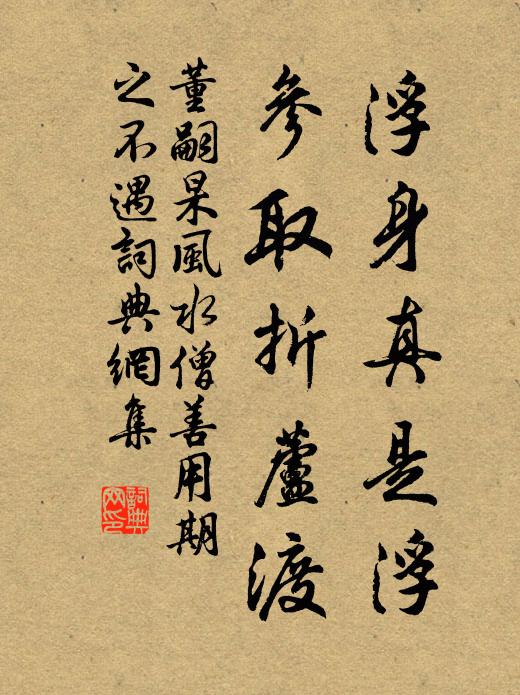 浮身真是浮
參取折蘆渡
董嗣杲風水僧善用期
之不遇詞典網集
詞典網印